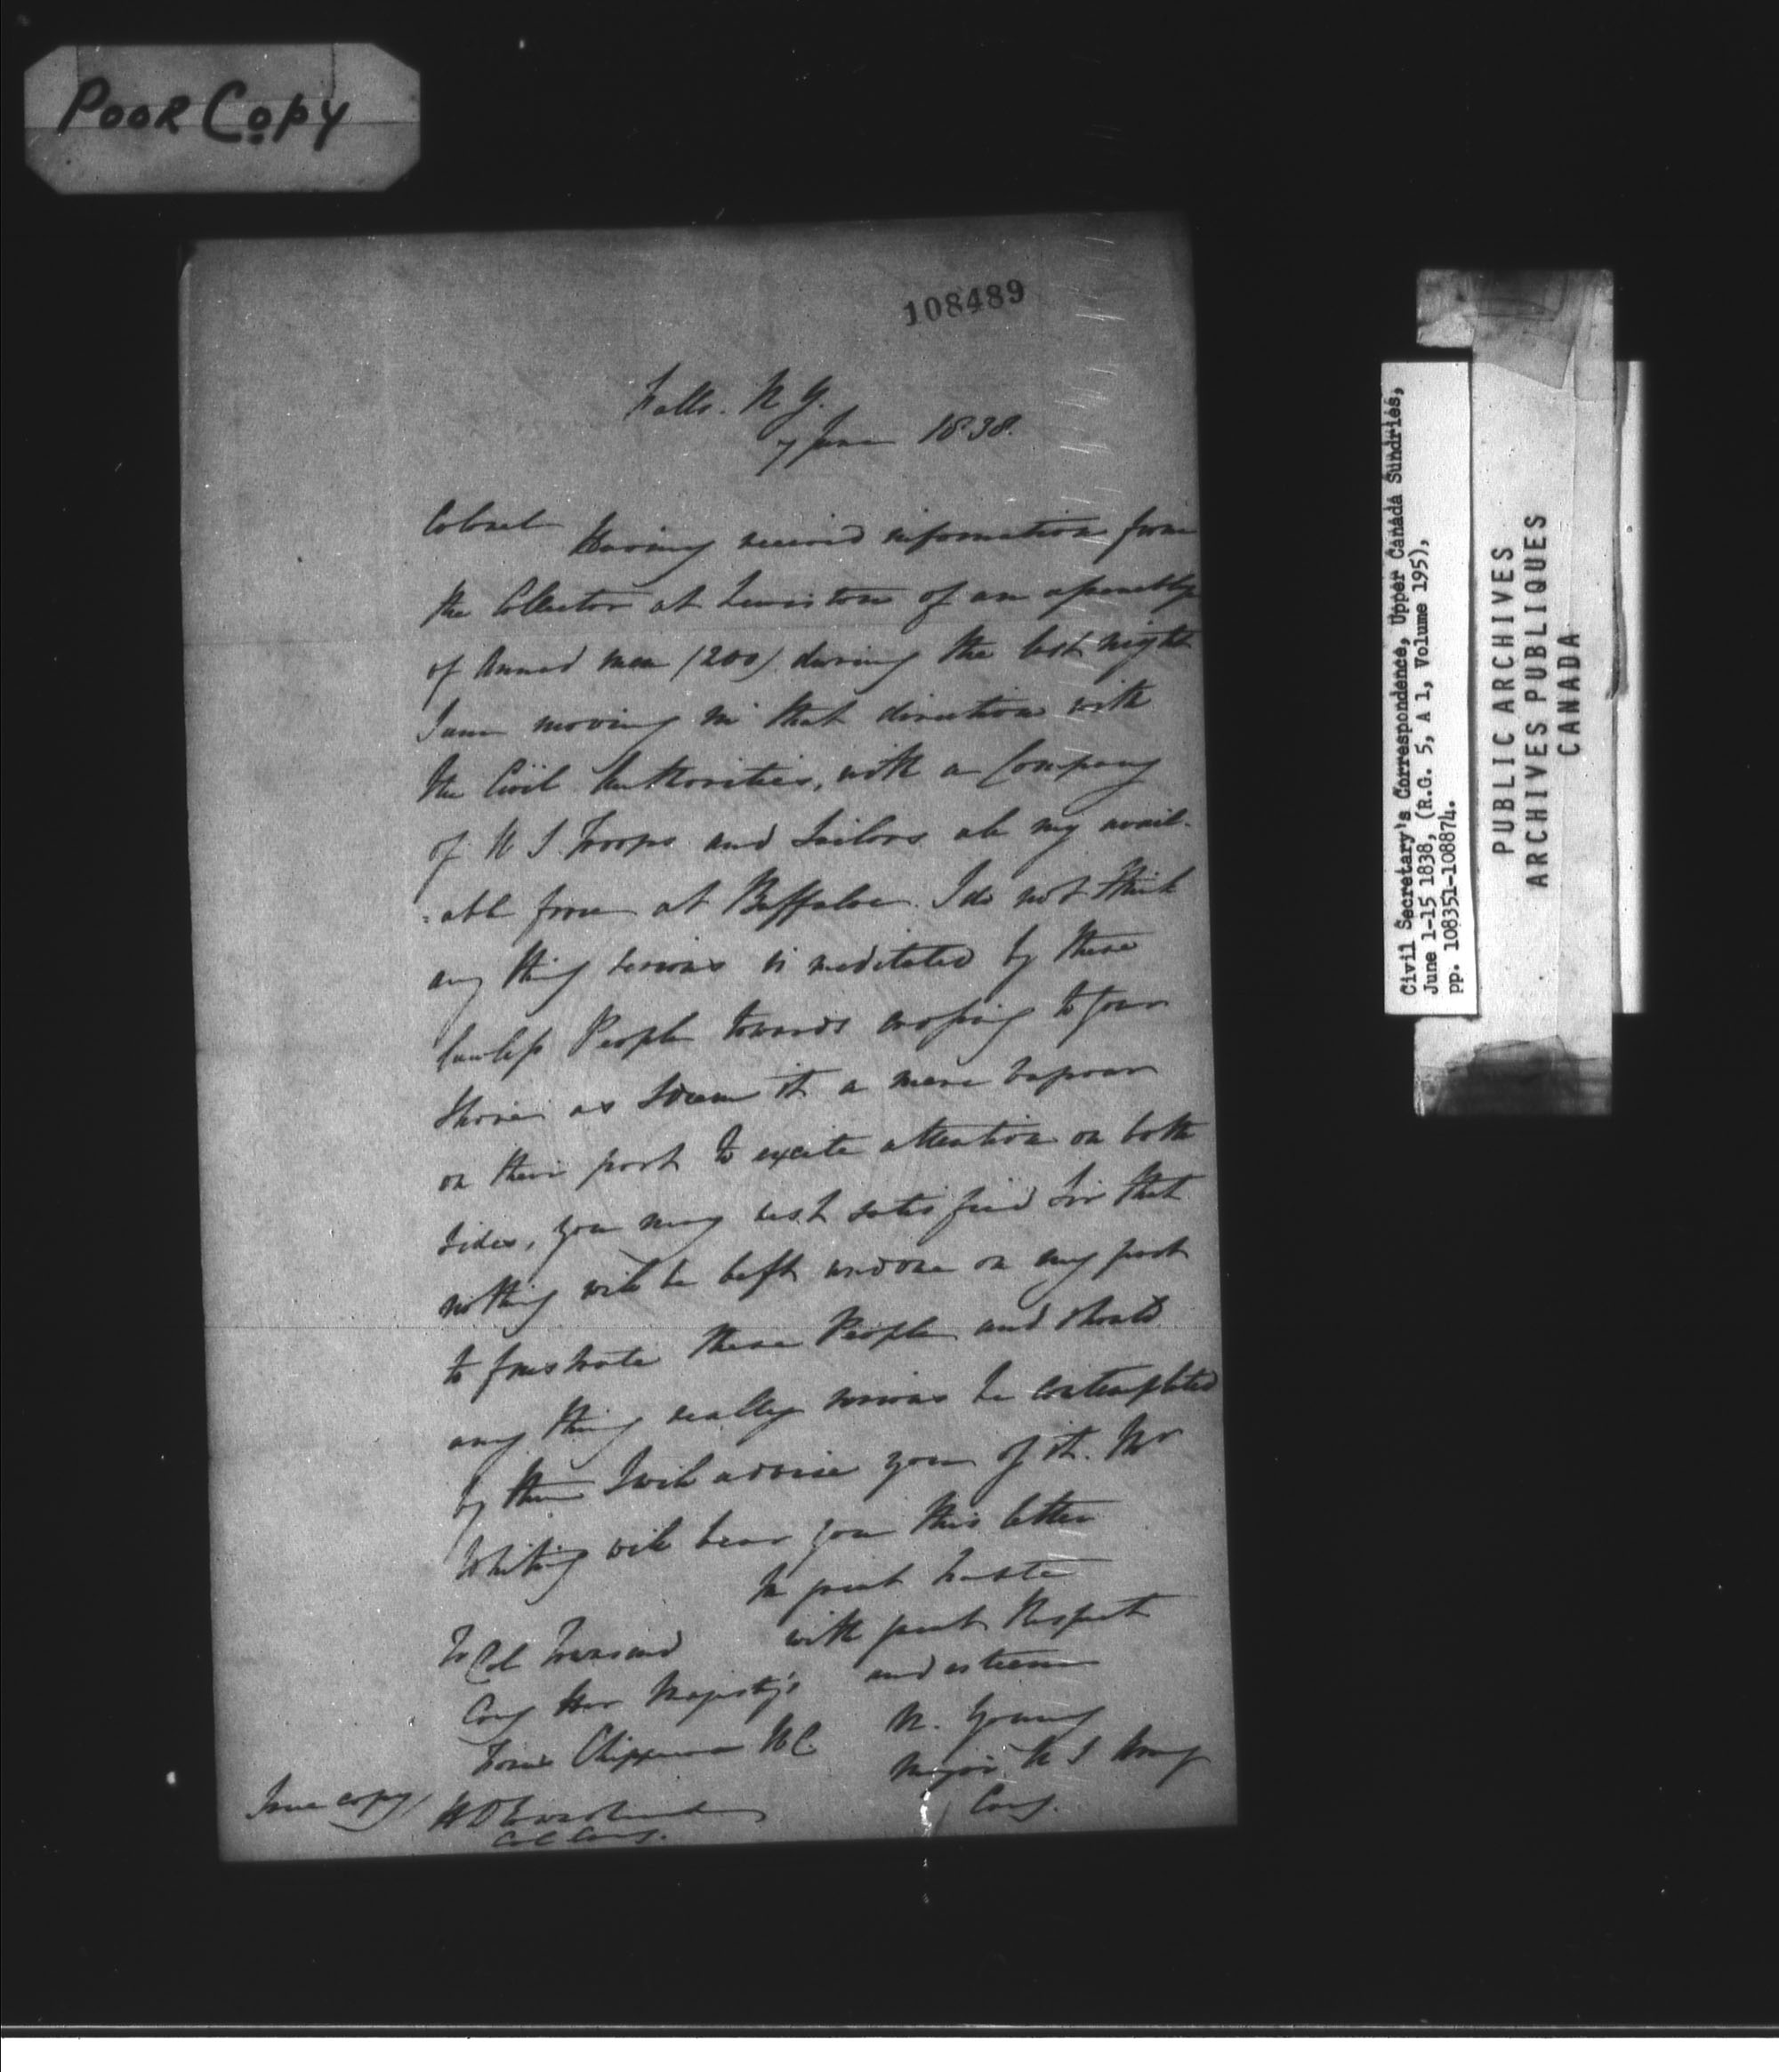 POOR COPY
108489
Falls. N Y.
7 June 1838.
Colonel Having received information from
the Collector at Lewiston of an assembly
of Armed men (200) during the last night
I am moving in that direction with
the Civil Authorities, with a Company
of U S Troops and Sailors all my avail-
-able force at Buffaloe. I do not think
any thing serious is meditated by these
lawless People towards crossing to your
shore as I deem it a mere vapour
on their part to excite attention on both
sides, you may rest satisfied Sir that
nothing will be left undone on my part
to frustrate these People and should
any thing really serious be contemplated
by them I will advise you of it. Mr
Whiting will bear you this letter
In great haste
with great Respect
and esteem
To Col Townsend
Comg Her Majesty's
Force Chippewa U C.
N. Young
Major, U S Army
Comg.
True copy,
Col Comg.
Civil Secretary's Correspondence, Upper Canada Sundries,
June 1-15 1838, (R.G. 5, A 1, Volume 195),
pp. 108351-108874.
PUBLIC ARCHIVES
ARCHIVES PUBLIQUES
CANADA